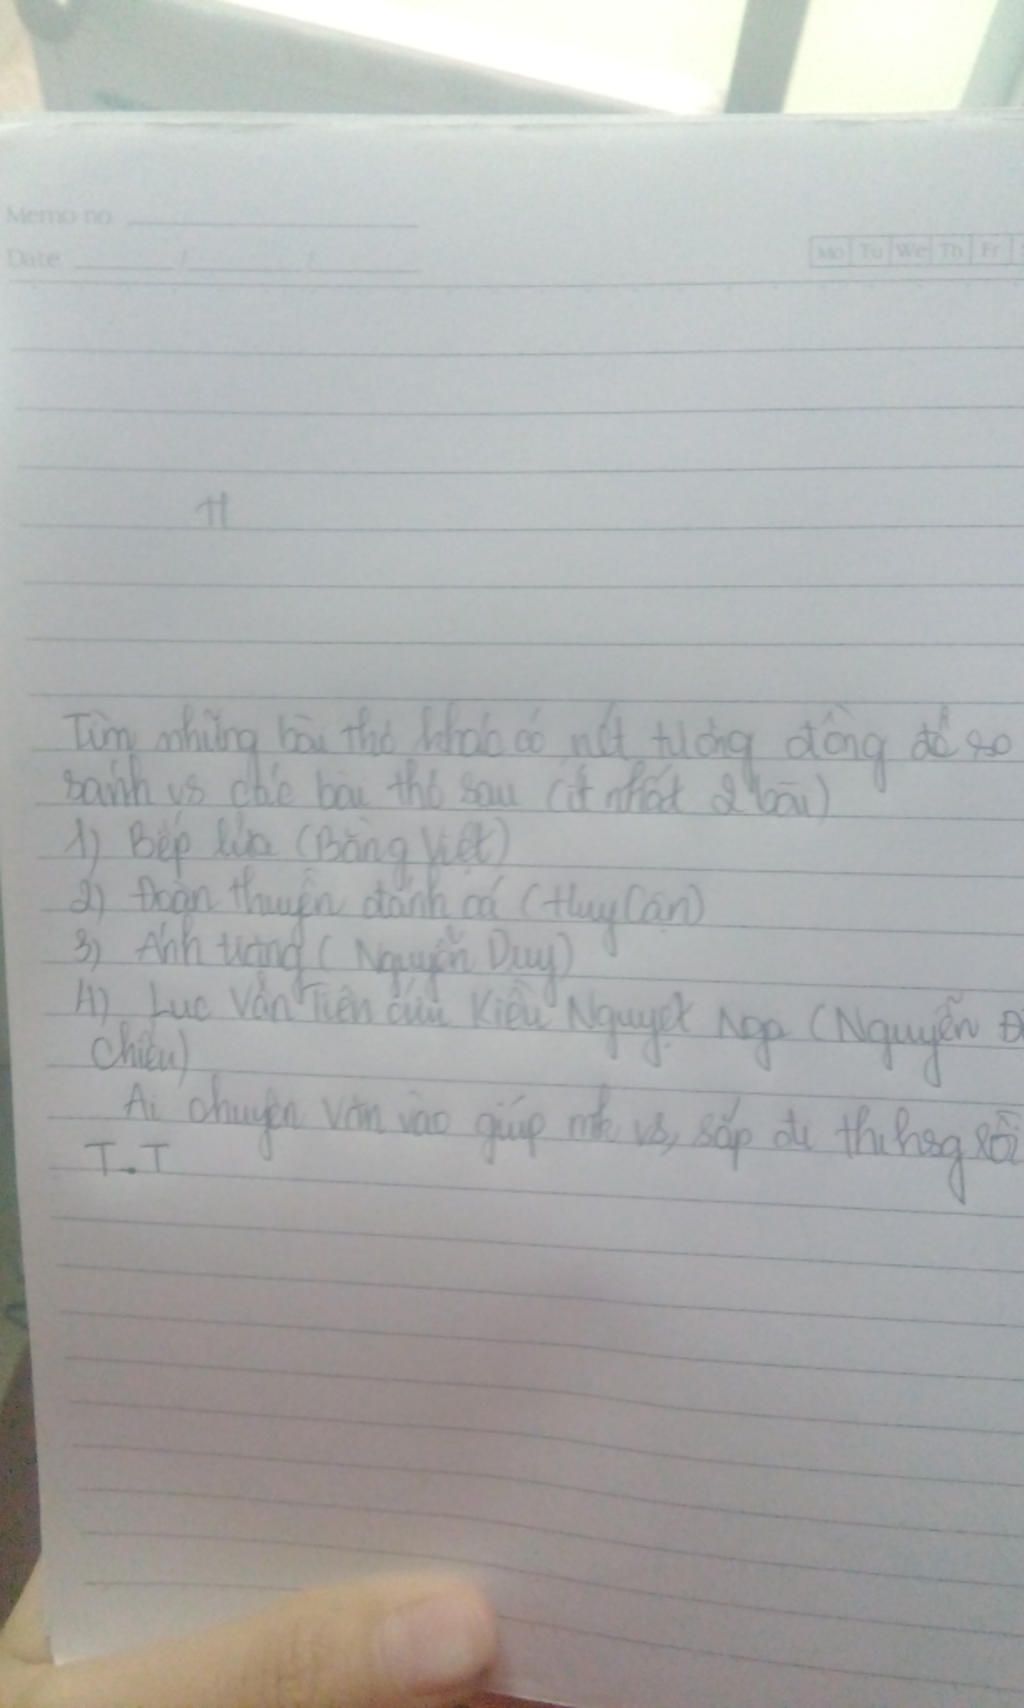 Memo no.
Date / /
Mo Tu We Th Fr S
H
Tìm những bài thơ khác có nét tương đồng để so
sánh vs các bài thơ sau (ít nhất 2 bài)
1) Bếp lửa (Bằng Việt)
2) Đoàn thuyền đánh cá (Huy Cận)
3) Ánh trăng (Nguyễn Duy)
4) Lục Vân Tiên cứu Kiều Nguyệt Nga (Nguyễn Đ
Chiểu)
Ai chuyên Văn vào giúp mk vs, sắp đi thi hsg rồi
T.T